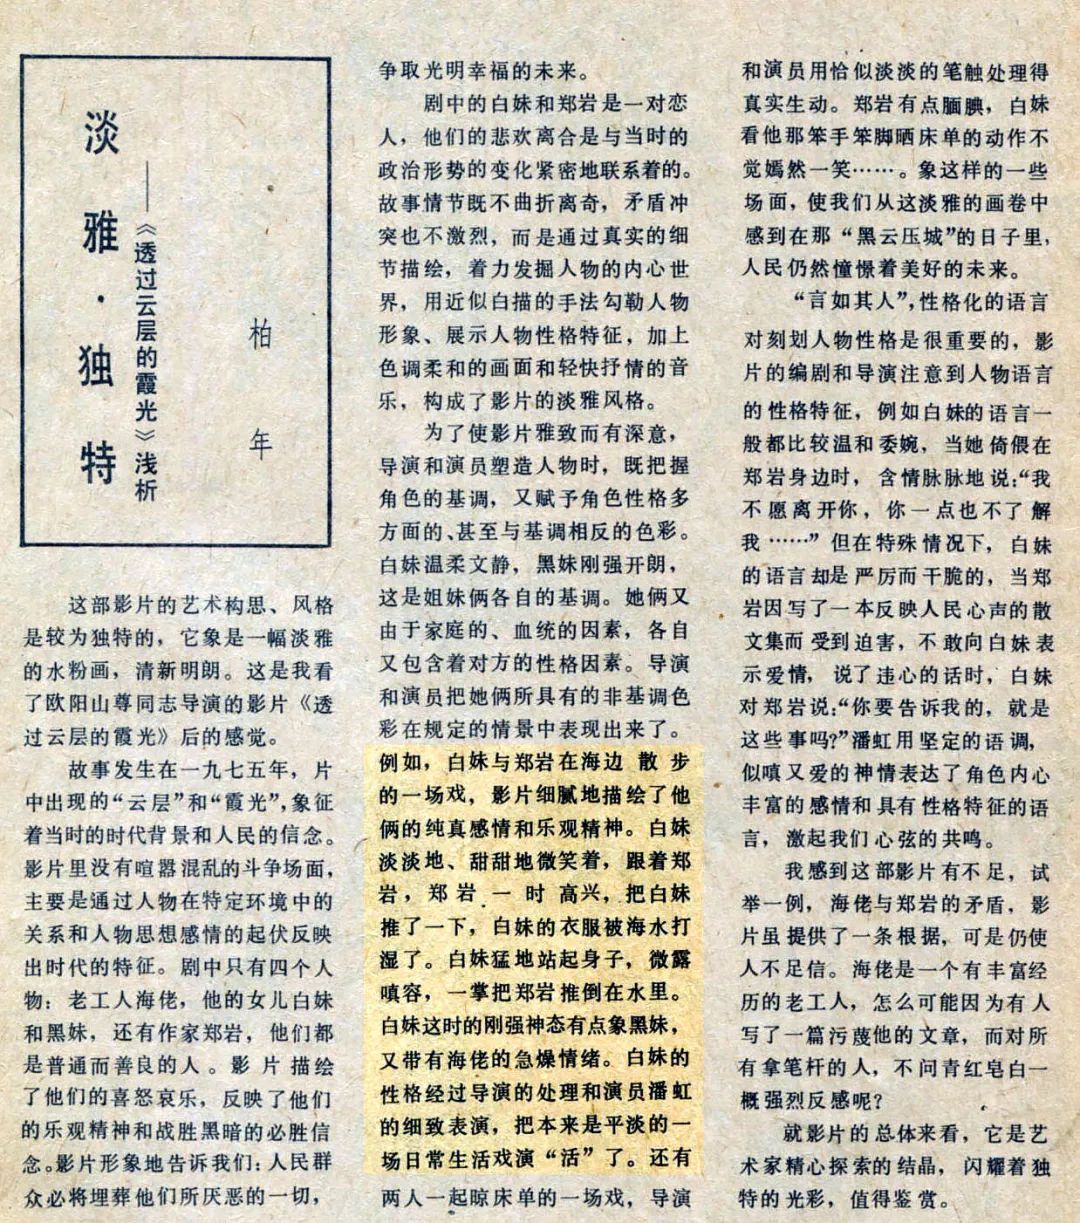 淡雅·独特
——《透过云层的霞光》浅析
柏年
这部影片的艺术构思、风格
是较为独特的，它象是一幅淡雅
的水粉画，清新明朗。这是我看
了欧阳山尊同志导演的影片《透
过云层的霞光》后的感觉。
故事发生在一九七五年，片
中出现的“云层”和“霞光”，象征
着当时的时代背景和人民的信念。
影片里没有喧嚣混乱的斗争场面，
主要是通过人物在特定环境中的
关系和人物思想感情的起伏反映
出时代的特征。剧中只有四个人
物：老工人海佬，他的女儿白妹
和黑妹，还有作家郑岩，他们都
是普通而善良的人。影片描绘
了他们的喜怒哀乐，反映了他们
的乐观精神和战胜黑暗的必胜信
念。影片形象地告诉我们：人民群
众必将埋葬他们所厌恶的一切，
争取光明幸福的未来。
剧中的白妹和郑岩是一对恋
人，他们的悲欢离合是与当时的
政治形势的变化紧密地联系着的。
故事情节既不曲折离奇，矛盾冲
突也不激烈，而是通过真实的细
节描绘，着力发掘人物的内心世
界，用近似白描的手法勾勒人物
形象、展示人物性格特征，加上
色调柔和的画面和轻快抒情的音
乐，构成了影片的淡雅风格。
为了使影片雅致而有深意，
导演和演员塑造人物时，既把握
角色的基调，又赋予角色性格多
方面的、甚至与基调相反的色彩。
白妹温柔文静，黑妹刚强开朗，
这是姐妹俩各自的基调。她俩又
由于家庭的、血统的因素，各自
又包含着对方的性格因素。导演
和演员把她俩所具有的非基调色
彩在规定的情景中表现出来了。
例如，白妹与郑岩在海边散步
的一场戏，影片细腻地描绘了他
俩的纯真感情和乐观精神。白妹
淡淡地、甜甜地微笑着，跟着郑
岩，郑岩一时高兴，把白妹
推了一下，白妹的衣服被海水打
湿了。白妹猛地站起身子，微露
嗔容，一掌把郑岩推倒在水里。
白妹这时的刚强神态有点象黑妹，
又带有海佬的急燥情绪。白妹的
性格经过导演的处理和演员潘虹
的细致表演，把本来是平淡的一
场日常生活戏演“活”了。还有
两人一起晾床单的一场戏，导演
和演员用恰似淡淡的笔触处理得
真实生动。郑岩有点腼腆，白妹
看他那笨手笨脚晒床单的动作不
觉嫣然一笑……。象这样的一些
场面，使我们从这淡雅的画卷中
感到在那“黑云压城”的日子里，
人民仍然憧憬着美好的未来。
“言如其人”，性格化的语言
对刻划人物性格是很重要的，影
片的编剧和导演注意到人物语言
的性格特征，例如白妹的语言一
般都比较温和委婉，当她倚偎在
郑岩身边时，含情脉脉地说：“我
不愿离开你，你一点也不了解
我……”但在特殊情况下，白妹
的语言却是严厉而干脆的，当郑
岩因写了一本反映人民心声的散
文集而受到迫害，不敢向白妹表
示爱情，说了违心的话时，白妹
对郑岩说：“你要告诉我的，就是
这些事吗？”潘虹用坚定的语调，
似嗔又爱的神情表达了角色内心
丰富的感情和具有性格特征的语
言，激起我们心弦的共鸣。
我感到这部影片有不足，试
举一例，海佬与郑岩的矛盾，影
片虽提供了一条根据，可是仍使
人不足信。海佬是一个有丰富经
历的老工人，怎么可能因为有人
写了一篇污蔑他的文章，而对所
有拿笔杆的人，不问青红皂白一
概强烈反感呢？
就影片的总体来看，它是艺
术家精心探索的结晶，闪耀着独
特的光彩，值得鉴赏。